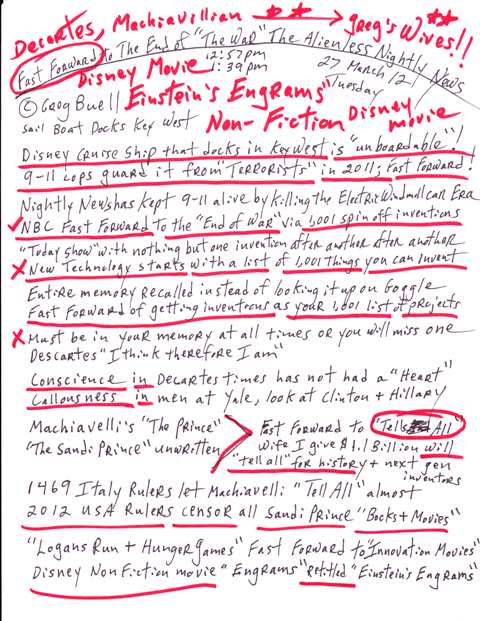 Decartes, Machiavillian ** → Greg's Wives!! **
Fast Forward to The End of "The War" The Alienless Nightly News
Disney Movie 12:57pm
1:39pm
27 March 12
Tuesday
© Greg Buell Einstein's Engrams"
Sail Boat Docks Key West Non-Fiction Disney movie
Disney Cruise Ship that docks in Key West is "unboardable"!
9-11 cops guard it from "Terrorists" in 2011; Fast Forward!
Nightly News has kept 9-11 alive by killing the Electric Windmill car Era
NBC Fast Forward to the "End of War" via 1,001 spin off inventions
"Today Show" with nothing but one invention after another after another
X New Technology starts with a list of 1,001 things you can invent
Entire memory recalled instead of looking it up on Goggle
Fast Forward of getting inventions as your 1,001 list of projects
X Must be in your memory at all times or you will miss one
Descartes "I think therefore I am"
Conscience in Decartes times has not had a "Heart"
Callousness in men at Yale, look at Clinton + Hillary
Machiavelli's "The Prince"
"The Sandi Prince" unwritten
Fast Forward to "Tells All"
wife I give $1.1 Billion will
"tell all" for history + next gen
inventors
1469 Italy Rulers let Machiavelli "Tell All" almost
2012 USA Rulers censor all Sandi Prince "Books + Movies"
"Logans Run + Hunger Games" Fast Forward to "Innovation Movies"
Disney Non Fiction movie "Engrams" retitled "Einstein's Engrams"